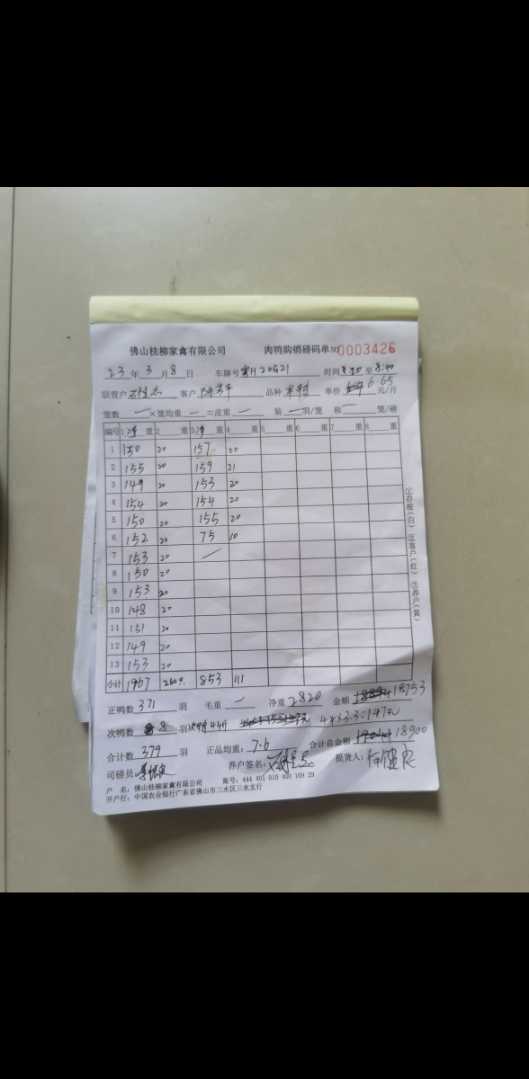 佛山桂柳家禽有限公司 肉鸭购销磅码单 №0003426
23年3月8日 车牌号 20G21 时间 至 8:40
联营户 客户 品种 单价 6.65 元/斤
笼数 一 ×笼均重 一 =皮重 一 装 一 羽/笼 和 一 笼/磅
编号 1 净重 2 重 3 净重 4 重 5 重 6 重 7 重 8 重
1 150 20 157 20
2 155 20 159 21
3 149 20 153 20
4 154 20 154 20
5 150 20 155 20
6 152 20 75 10
7 153 20
8 150 20
9 153 20
10 148 20
11 151 20
12 149 20
13 153 20
小计 1967 260 853 111
①存根(白) ②客户(红) ③养户(黄)
正鸭数 371 羽 毛重 一 净重 2820 金额 18753
次鸭数 8 羽 44×3.3=147元
合计数 379 羽 正品均重: 7.6 合计总金额 18900
司磅员 养户签名: 提货人:
户 名: 佛山桂柳家禽有限公司 账号: 444 401 010 400 109 29
开户行: 中国农业银行广东省佛山市三水区三水支行